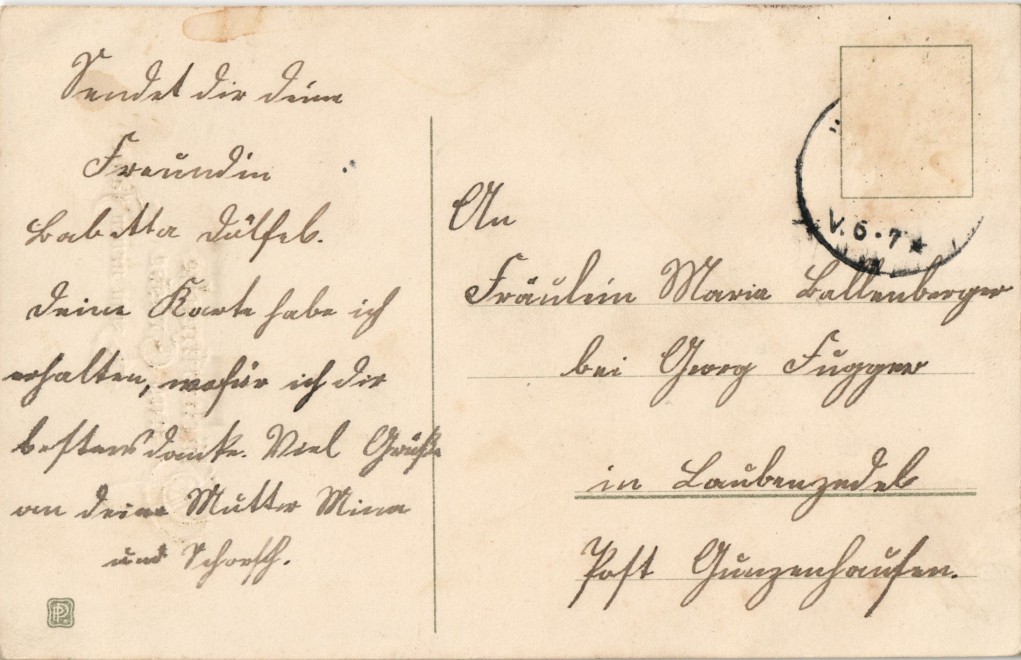 Sendet dir deine
Freundin
Babetta Dölfel.
Deine Karte habe ich
erhalten, wofür ich dir
bestens danke. Viel Grüße
an deine Mutter Mina
und Schorsch.
An
Fräulein Maria Ballenberger
bei Georg Fugger
in Laubenzedel
Post Gunzenhausen.
V. 6-7